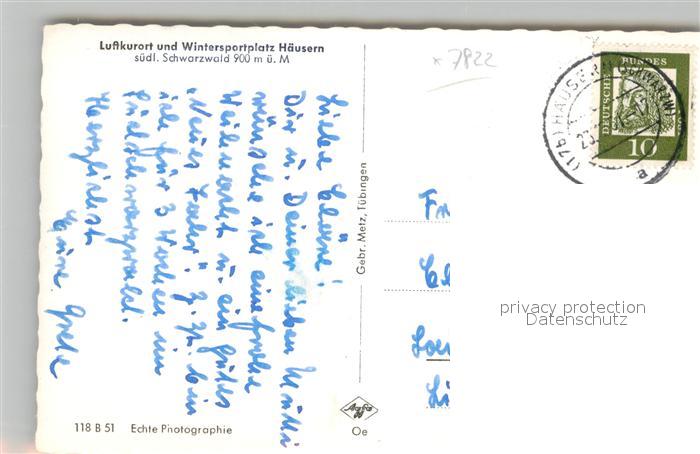 Luftkurort und Wintersportplatz Häusern
südl. Schwarzwald 900 m ü. M
x 7822
DEUTSCHE BUNDES
10
(17b) HÄUSERN (SCHWARZW
23.
a
Liebe
Dir u. Deiner lieben Mutti
wünsche ich eine frohe
Weihnacht u. ein gutes
"Neues Jahr". Z. Zt. bin
ich für 3 Wochen im
Hochschwarzwald.
Herzlichst
Deine Grete
Gebr. Metz, Tübingen
Fr
privacy protection
Datenschutz
118 B 51 Echte Photographie
Agfa
Oe